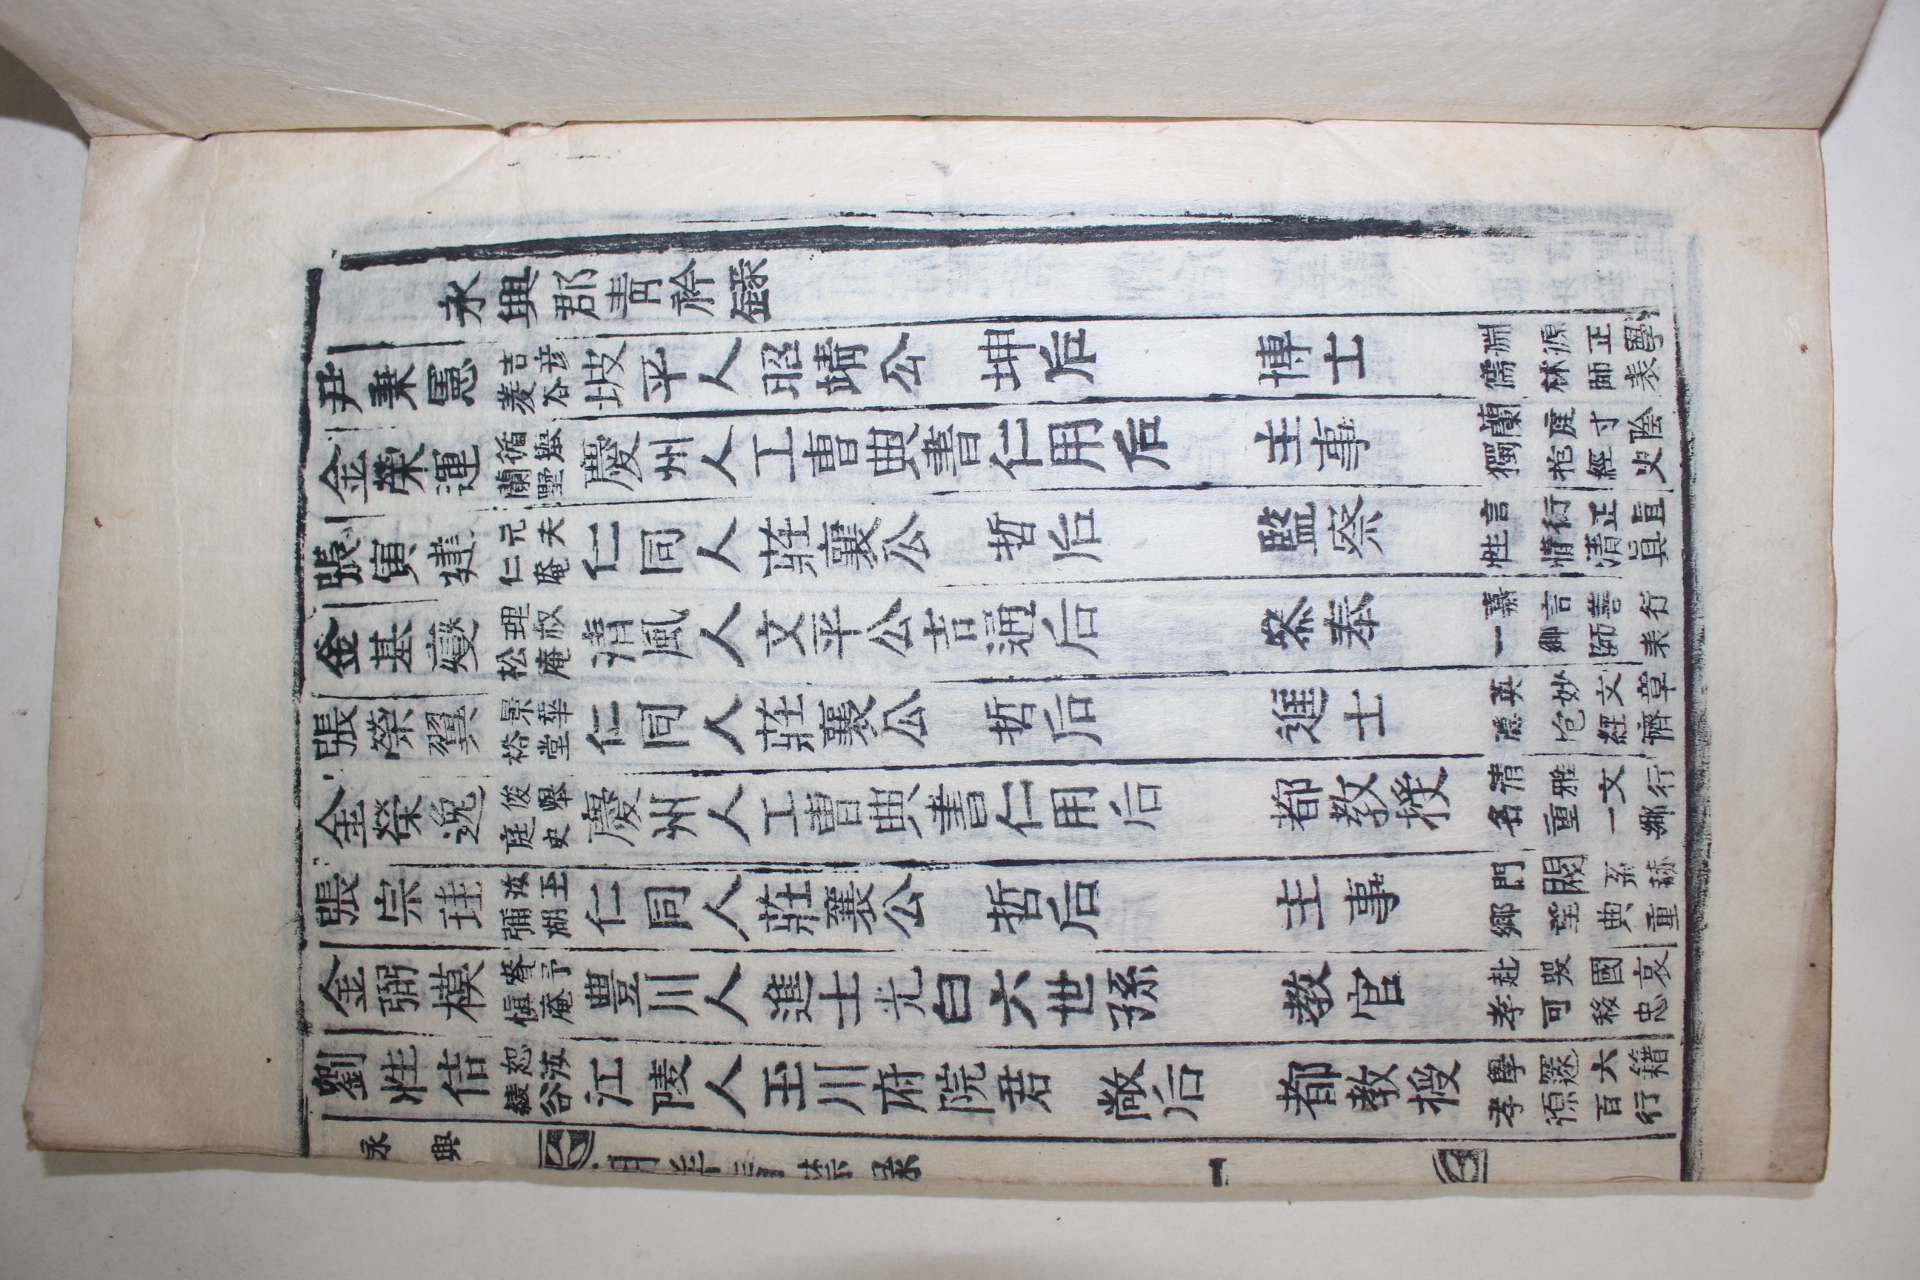 永興郡靑衿錄
尹秉憲 吉彦 菱谷 坡平人昭靖公坤后 博士 淵源正學 儒林師表
金榮運 循擧 蘭墅 慶州人工曹典書仁用后 主事 蘭庭寸陰 獨抱經史
張寅建 元夫 仁庵 仁同人莊襄公哲后 監察 言行正直 性情清眞
金基燮 理叔 松庵 清風人文平公吉通后 參奉 嘉言善行 一鄉師表
張榮翼 景華 裕堂 仁同人莊襄公哲后 進士 英妙文章 包經濟
金榮逸 俊擧 庭史 慶州人工曹典書仁用后 都教授 清雅文行 名重一鄉
張宗珪 汝玉 彌湖 仁同人莊襄公哲后 主事 門閥系赫 鄉望典重
金弼模 聲予 愼庵 豊川人進士光白六世孫 教官 赴哭國哀 孝可移忠
劉性佶 恕汝 綾谷 江陵人玉川府院君敞后 都教授 學邃六籍 孝源百行
永興 一